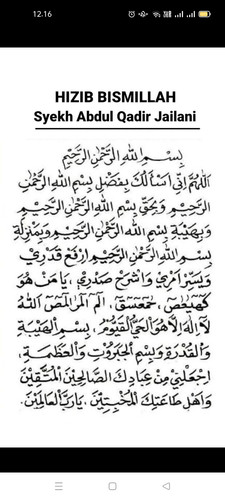 12.16
HIZIB BISMILLAH
Syekh Abdul Qadir Jailani
بِسْمِ اللهِ الرَّحْمٰنِ الرَّحِيْمِ
اَللّٰهُمَّ اِنِّى اَسْأَلُكَ بِفَضْلِ بِسْمِ اللهِ الرَّحْمٰنِ
الرَّحِيْمِ وَبِحَقِّ بِسْمِ اللهِ الرَّحْمٰنِ الرَّحِيْمِ
وَبِهَيْبَةِ بِسْمِ اللهِ الرَّحْمٰنِ الرَّحِيْمِ وَبِمَنْزِلَةِ
بِسْمِ اللهِ الرَّحْمٰنِ الرَّحِيْمِ اِرْفَعْ قَدْرِيْ
وَيَسِّرْ اَمْرِيْ وَاشْرَحْ صَدْرِيْ ، يَا مَنْ هُوَ
كٓهٰيٰعٓصٓ ، حٰمٓعٓسٓقٓ ، الٓمٓ الٓمٓرٰ الٓمٓصٓ اَللهُ
لَا اِلٰهَ اِلَّا هُوَ الْحَيُّ الْقَيُّوْمُ ، بِسِرِّ الْهَيْبَةِ
وَالْقُدْرَةِ وَبِسِرِّ الْجَبَرُوْتِ وَالْعَظَمَةِ ،
اِجْعَلْنِيْ مِنْ عِبَادِكَ الصَّالِحِيْنَ الْمُتَّقِيْنَ
وَاَهْلِ طَاعَتِكَ الْمُخْبِتِيْنَ ، يَا رَبَّ الْعَالَمِيْنَ .